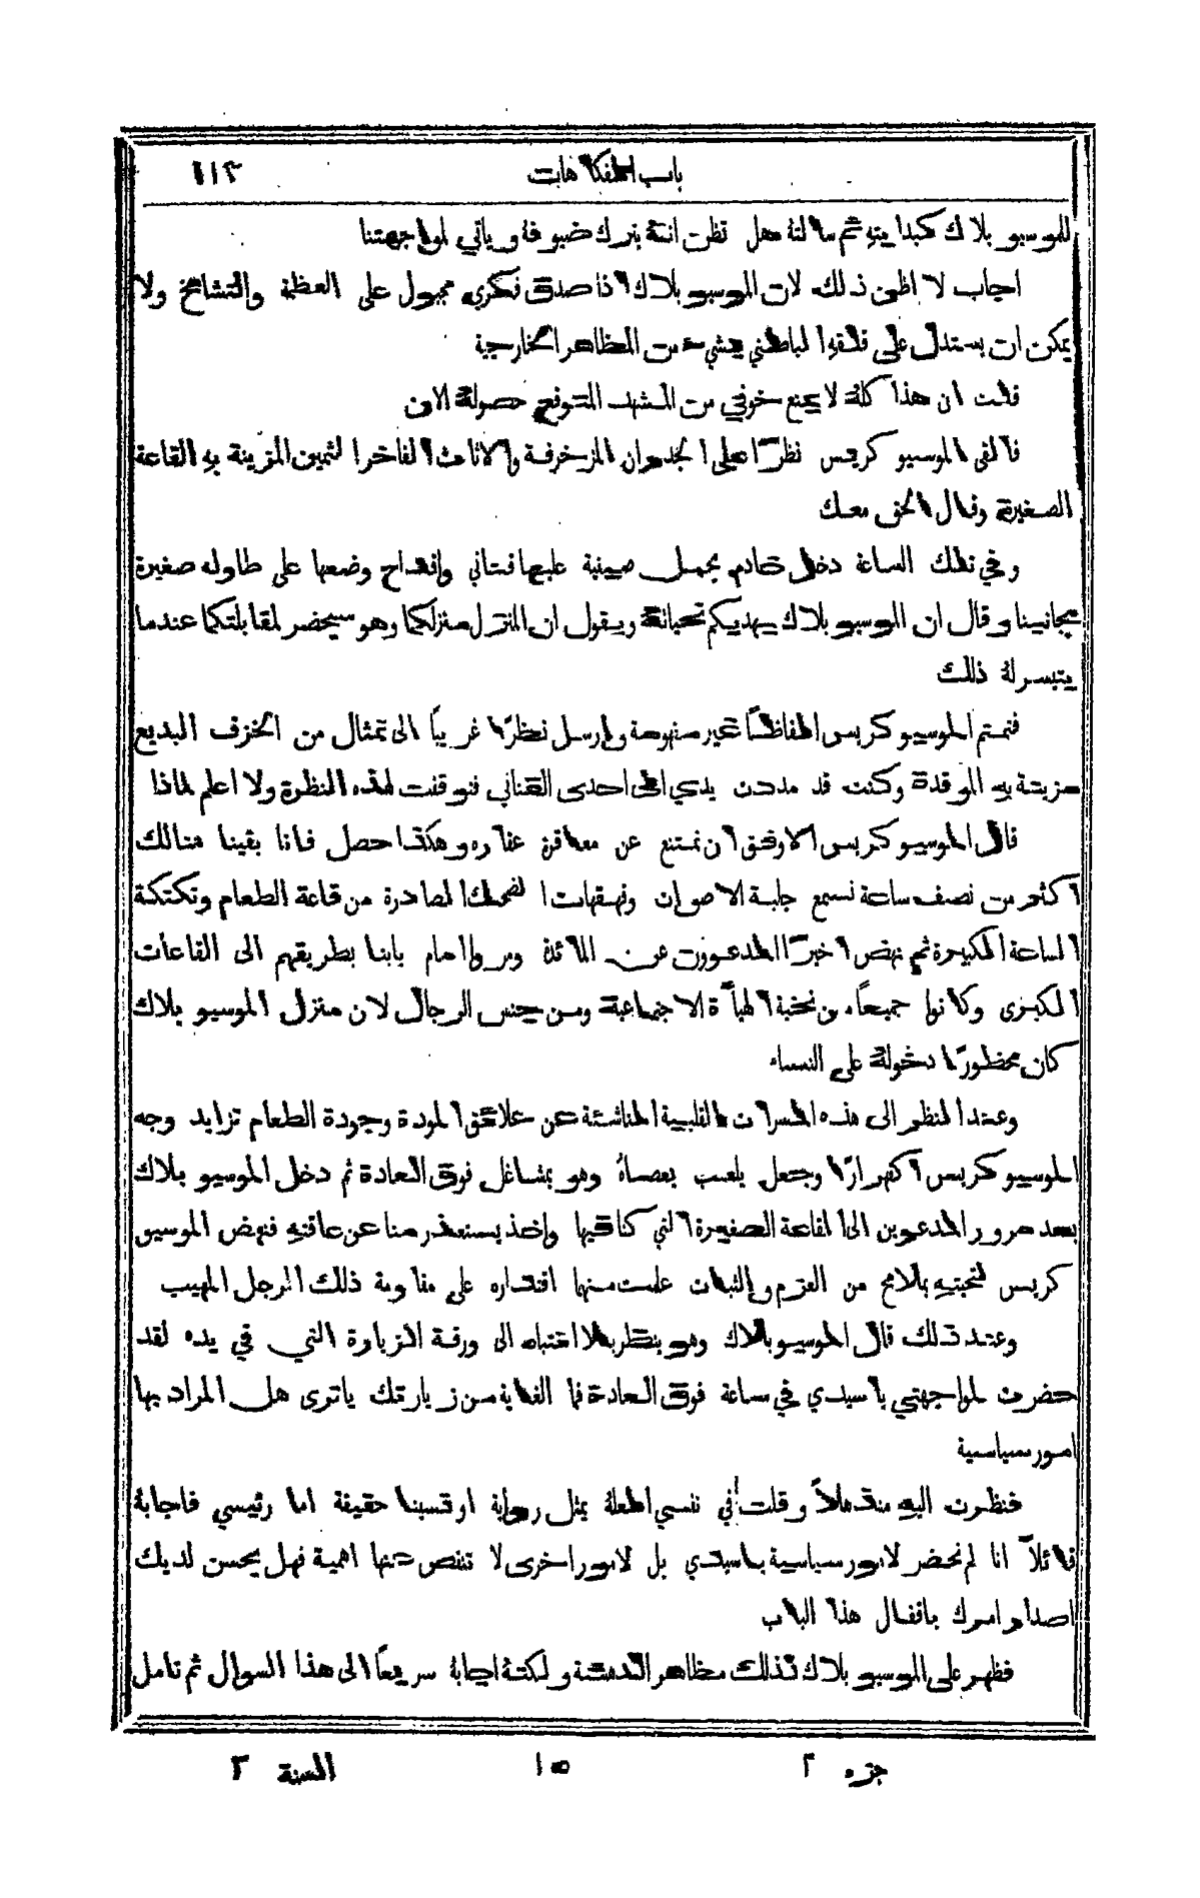 باب الفكاهات ١١٣
للموسيو بلاك كبداءيته ثم سالته هل تظن انه يترك ضيوفه وياتي لمواجهتنا
اجاب لا اظن ذلك لان الموسيو بلاك اذا صدق فكري مجبول على العظمة والتشامخ ولا
يمكن ان يستدل على قلقه الباطني بشيء من المظاهر الخارجية
قلت ان هذا كله لا يمنع خوفي من المشهد المتوقع حصوله الان
فالقى الموسيو كريس نظرًا على الجدران المزخرفة والاثاث الفاخر الثمين المزينة به القاعة
الصغيرة وقال الحق معك
وفي تلك الساعة دخل خادم يحمل صينية عليها قناني واقداح وضعها على طاوله صغيرة
بجانبنا وقال ان الموسيو بلاك يهديكم تحياته ويقول ان المنزل منزلكما وهو سيحضر لمقابلتكما عندما
يتيسر له ذلك
فتمتم الموسيو كريس الفاظًا غير مفهومة وارسل نظرًا غريبًا الى تمثال من الخزف البديع
مزينة به الموقدة وكنت قد مددت يدي الى احدى القناني فتوقفت لهذه النظرة ولا اعلم لماذا
قال الموسيو كريس الاوفق ان نمتنع عن معاقرة عقاره وهكذا حصل فاننا بقينا هنالك
اكثر من نصف ساعة نسمع جلبة الاصوات وقهقهات الضحك الصادرة من قاعة الطعام وتكتكة
الساعة الكبيرة ثم نهض اخيرًا المدعوون عن المائدة ومروا امام بابنا بطريقهم الى القاعات
الكبرى وكانوا جميعًا من نخبة الهيأة الاجتماعية ومن جنس الرجال لان منزل الموسيو بلاك
كان محظورًا دخوله على النساء
وعند النظر الى هذه المسرات القلبية الناشئة عن علائق المودة وجودة الطعام تزايد وجه
الموسيو كريس اكفهرارًا وجعل يلعب بعصاه وهو متشاغل فوق العادة ثم دخل الموسيو بلاك
بعد مرور المدعوين الى القاعة الصغيرة التي كنا فيها واخذ يستعذر منا عن عاقته فنهض الموسيو
كريس لتحيته بملامح من العزم والثبات علمت منها اقتداره على مقاومة ذلك الرجل المهيب
وعند ذلك قال الموسيو بلاك وهو ينظر بلا انتباه الى ورقة الزيارة التي في يده لقد
حضرت لمواجهتي يا سيدي في ساعة فوق العادة فما الغاية من زيارتك ياترى هل المراد بها
امور سياسية
فنظرت اليه منذهلاً وقلت في نفسي العله يمثل رواية او قسمًا حقيقة اما رئيسي فاجابه
قائلاً انا لم نحضر لامور سياسية ياسيدي بل لامور اخرى لا تنقص عنها اهمية فهل يحسن لديك
اصدار امرك باقفال هذا الباب
فظهر على الموسيو بلاك لذلك مظاهر الدهشة ولكنه اجابة سريعًا الى هذا السوال ثم تامل
جزء ٢ ١٥ السنة ٣